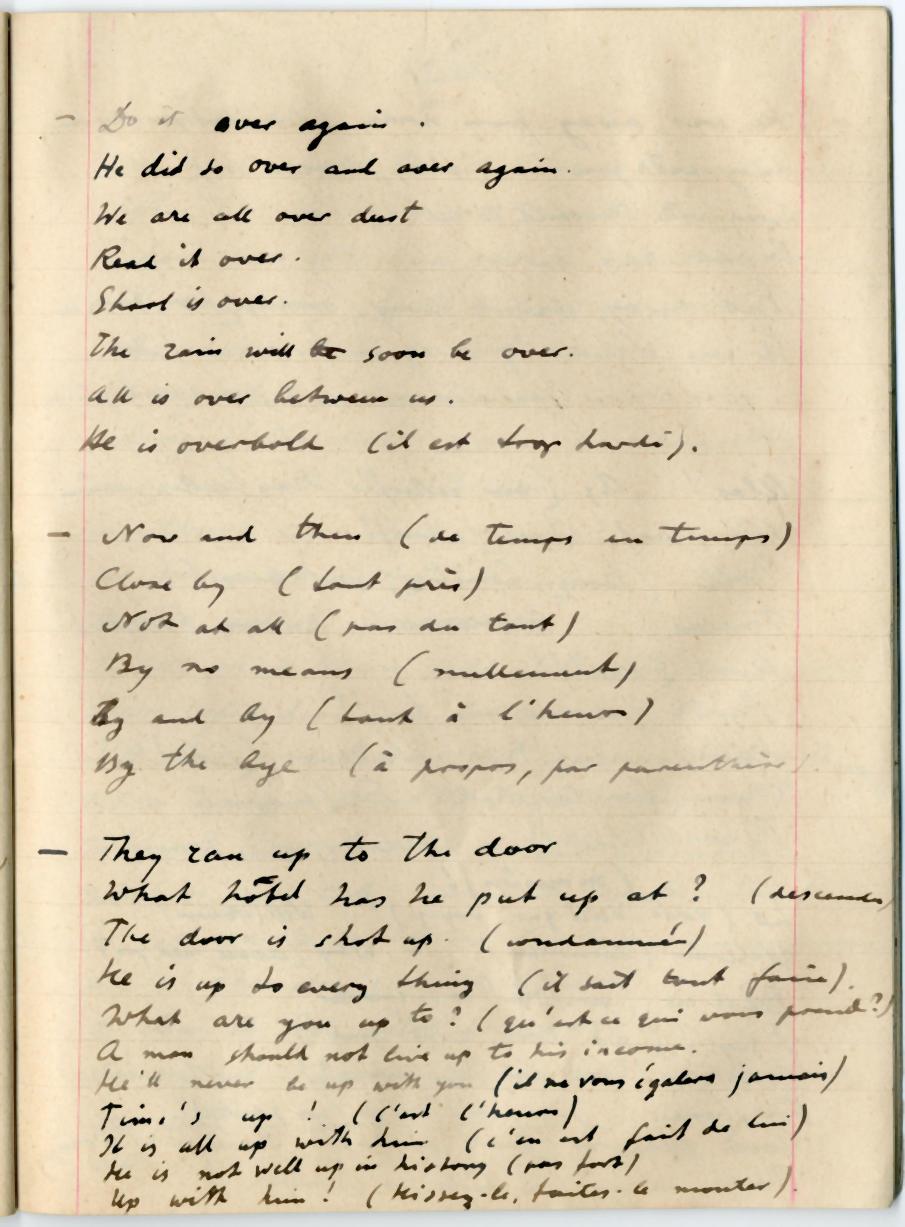 - Do it over again.
He did so over and over again.
We are all over dust
Read it over.
is over.
The rain will be soon be over.
All is over between us.
He is overbold (il est trop hardi).
- Now and then (de temps en temps)
Close by (tout près)
Not at all (pas du tout)
By no means (nullement)
By and by (tout à l'heure)
By the bye (à propos, par parenthèse).
- They ran up to the door
What hôtel has he put up at? (descendu)
The door is shot up. (condamnée)
He is up to every thing (il sait tout faire).
What are you up to? (qu'est ce qui vous prend?)
A man should not live up to his income.
He'll never be up with you (il ne vous égalera jamais)
Time's up! (C'est l'heure)
It is all up with him (c'en est fait de lui)
He is not well up in history (pas fort)
Up with him! (Hissez-le, faites-le monter).